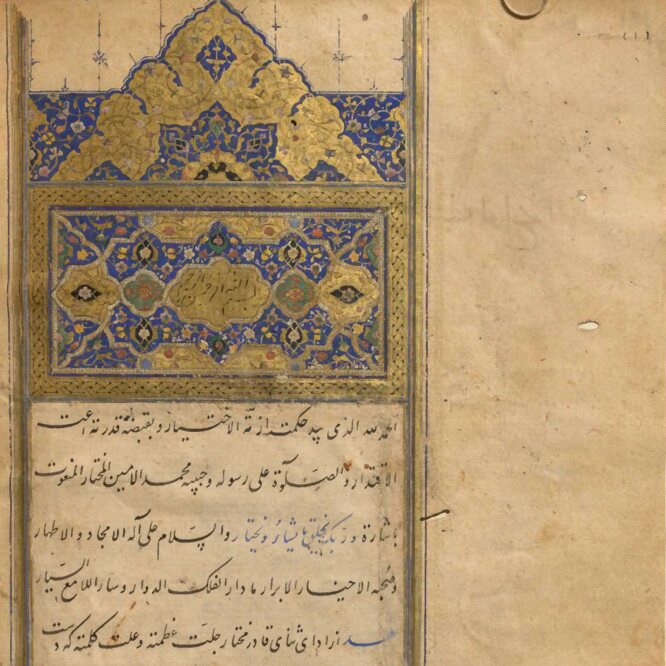 بسم الله الرحمن الرحیم
الحمد لله الذی بید حکمته ازمّة الاختیار و بقبضة قدرته اعنت
الاقتدار و الصّلوٰة علی رسوله و حبیبه محمد الامین المختار المنعوت
باشارة و ربک یخلق ما یشاٰء و یختار و السّلام علی آله الامجاد و الاطهار
و صحبه الاخیار الابرار ما دار الفلک الدوار و سار اللامع السیار
بعد از ادای ثنای قادر مختار جلت عظمته و علت کلمته که دست